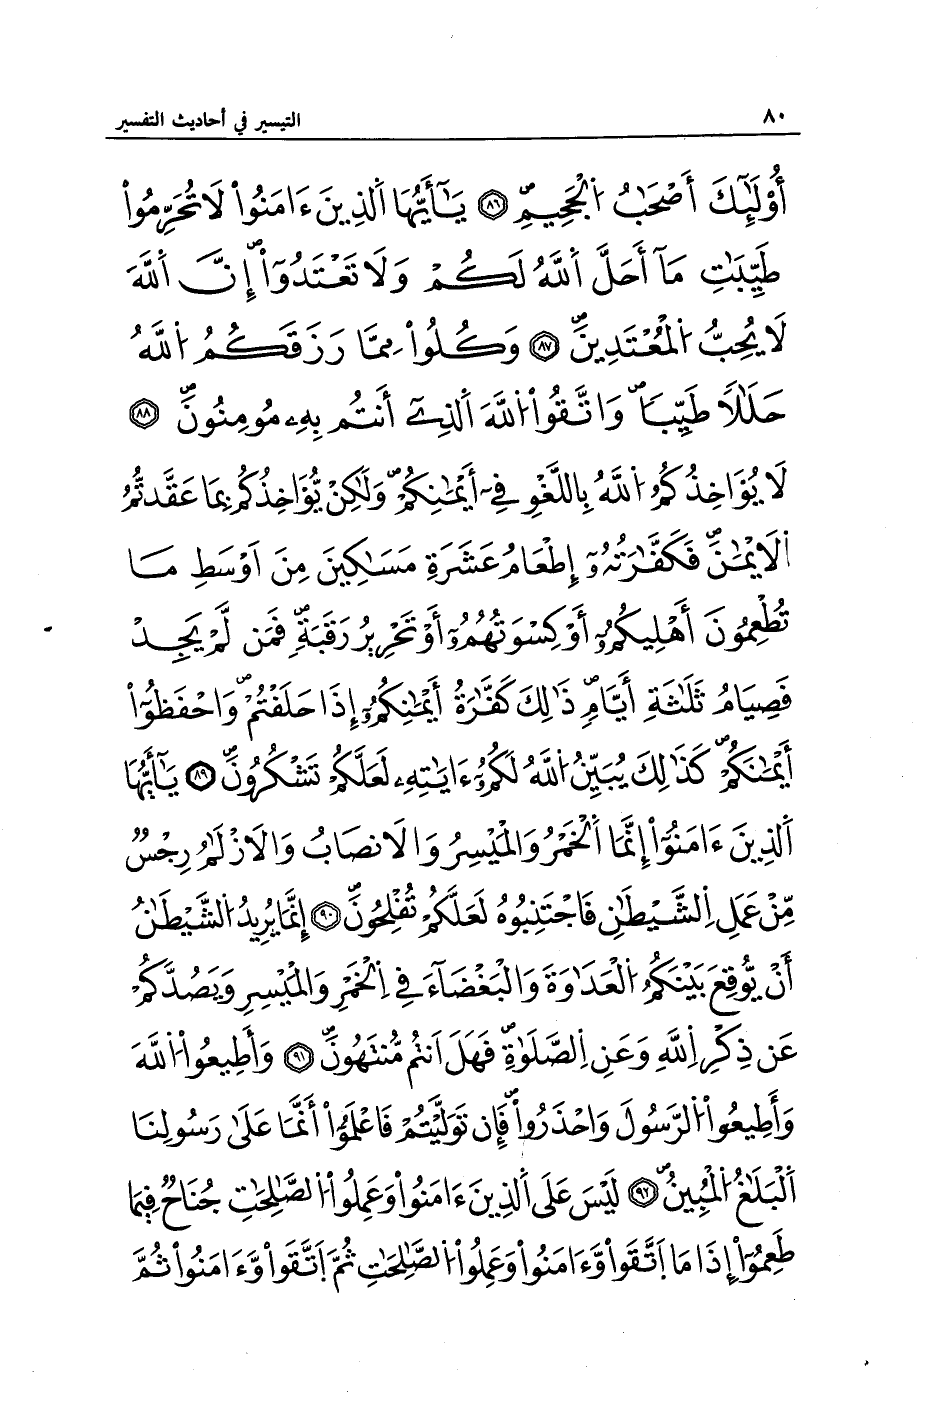 ٨٠ التيسير في أحاديث التفسير
أُوْلَٰٓئِكَ أَصْحَٰبُ اُ۬لْجَحِيمِۖ ٨٦ يَٰٓأَيُّهَا اَ۬لذِينَ ءَامَنُواْ لَا تُحَرِّمُواْ
طَيِّبَٰتِ مَآ أَحَلَّ اَ۬للَّهُ لَكُمْ وَلَا تَعْتَدُوٓاْۖ إِنَّ اَ۬للَّهَ
لَا يُحِبُّ اُ۬لْمُعْتَدِينَۖ ٨٧ وَكُلُواْ مِمَّا رَزَقَكُمُ اُ۬للَّهُ
حَلَٰلاً طَيِّباًۖ وَاتَّقُواْ اُ۬للَّهَ اَ۬لذِےٓ أَنتُم بِهِۦ مُومِنُونَۖ ٨٨
لَا يُؤَاخِذُكُمُ اُ۬للَّهُ بِاللَّغْوِ فِےٓ أَيْمَٰنِكُمْۖ وَلَٰكِنْ يُّؤَاخِذُكُم بِمَا عَقَّدتُّمُ
اُ۬لَايْمَٰنَۖ فَكَفَّٰرَتُهُۥٓ إِطْعَامُ عَشَرَةِ مَسَٰكِينَ مِنَ اَوْسَطِ مَا
تُطْعِمُونَ أَهْلِيكُمُۥٓ أَوْ كِسْوَتُهُمُۥٓ أَوْ تَحْرِيرُ رَقَبَةٖۖ فَمَن لَّمْ يَجِدْ
فَصِيَامُ ثَلَٰثَةِ أَيَّامٖۖ ذَٰلِكَ كَفَّٰرَةُ أَيْمَٰنِكُمُۥٓ إِذَا حَلَفْتُمْۖ وَاحْفَظُوٓاْ
أَيْمَٰنَكُمْۖ كَذَٰلِكَ يُبَيِّنُ اُ۬للَّهُ لَكُمُۥٓ ءَايَٰتِهِۦ لَعَلَّكُمْ تَشْكُرُونَۖ ٨٩ يَٰٓأَيُّهَا
اَ۬لذِينَ ءَامَنُوٓاْ إِنَّمَا اَ۬لْخَمْرُ وَالْمَيْسِرُ وَالَانصَابُ وَالَازْلَٰمُ رِجْسٌ
مِّنْ عَمَلِ اِ۬لشَّيْطَٰنِ فَاجْتَنِبُوهُ لَعَلَّكُمْ تُفْلِحُونَۖ ٩٠ إِنَّمَا يُرِيدُ اُ۬لشَّيْطَٰنُ
أَنْ يُّوقِعَ بَيْنَكُمُ اُ۬لْعَدَٰوَةَ وَالْبَغْضَآءَ فِے اِ۬لْخَمْرِ وَالْمَيْسِرِ وَيَصُدَّكُمْ
عَن ذِكْرِ اِ۬للَّهِ وَعَنِ اِ۬لصَّلَوٰةِۖ فَهَلَ اَنتُم مُّنتَهُونَۖ ٩١ وَأَطِيعُواْ اُ۬للَّهَ
وَأَطِيعُواْ اُ۬لرَّسُولَ وَاحْذَرُواْۖ فَإِن تَوَلَّيْتُمْ فَاعْلَمُوٓاْ أَنَّمَا عَلَىٰ رَسُولِنَا
اَ۬لْبَلَٰغُ اُ۬لْمُبِينُۖ ٩٢ لَيْسَ عَلَى اَ۬لذِينَ ءَامَنُواْ وَعَمِلُواْ اُ۬لصَّٰلِحَٰتِ جُنَاحٌ فِيمَا
طَعِمُوٓاْ إِذَا مَا اَ۪تَّقَواْ وَّءَامَنُواْ وَعَمِلُواْ اُ۬لصَّٰلِحَٰتِ ثُمَّ اَ۪تَّقَواْ وَّءَامَنُواْ ثُمَّ